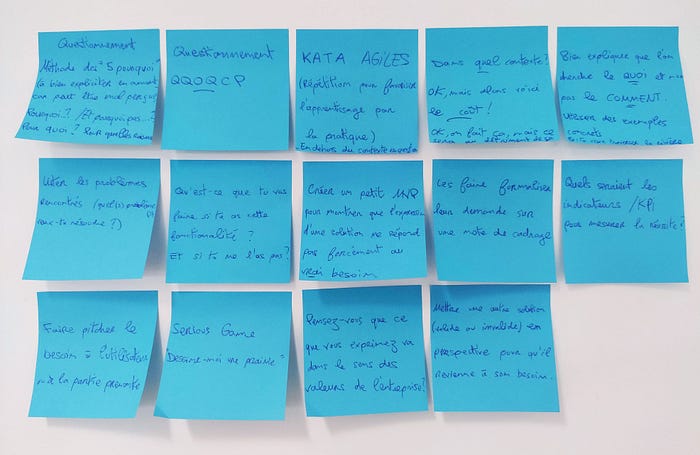 Questionnement
Méthode des "5 pourquoi"
(à bien expliciter en amont
car peut être mal perçu
Pourquoi ? / Et pourquoi pas... ?
Pour quoi ? Pour quelles raisons
Questionnement
QQOQCP
KATA AGILES
(Répétition pour favoriser
l'apprentissage par
la pratique)
En dehors du contexte
Dans quel contexte ?
OK, mais alors voici
le coût !
OK, on fait ça, mais ce
sera au détriment de
Bien expliquer que l'on
cherche le QUOI et non
pas le COMMENT.
Utiliser des exemples
concrets
la rivière
Lister les problèmes
rencontrés (quel(s) problème(s)
veux-tu résoudre ?)
Qu'est-ce que tu vas
faire si tu as cette
fonctionnalité ?
Et si tu ne l'as pas ?
Créer un petit MVP
pour montrer que l'expression
d'une solution ne répond
pas forcément au
vrai besoin
Les faire formaliser
leur demande sur
une note de cadrage
Quels seraient les
indicateurs / KPI
pour mesurer la réussite ?
Faire pitcher le
besoin à l'utilisateur
ou à la partie prenante
SERIOUS GAME
"Dessine-moi une prairie"
Pensez-vous que ce
que vous exprimez va
dans le sens des
valeurs de l'entreprise ?
Mettre une autre solution
(valide ou invalide) en
perspective pour qu'il
revienne à son besoin.